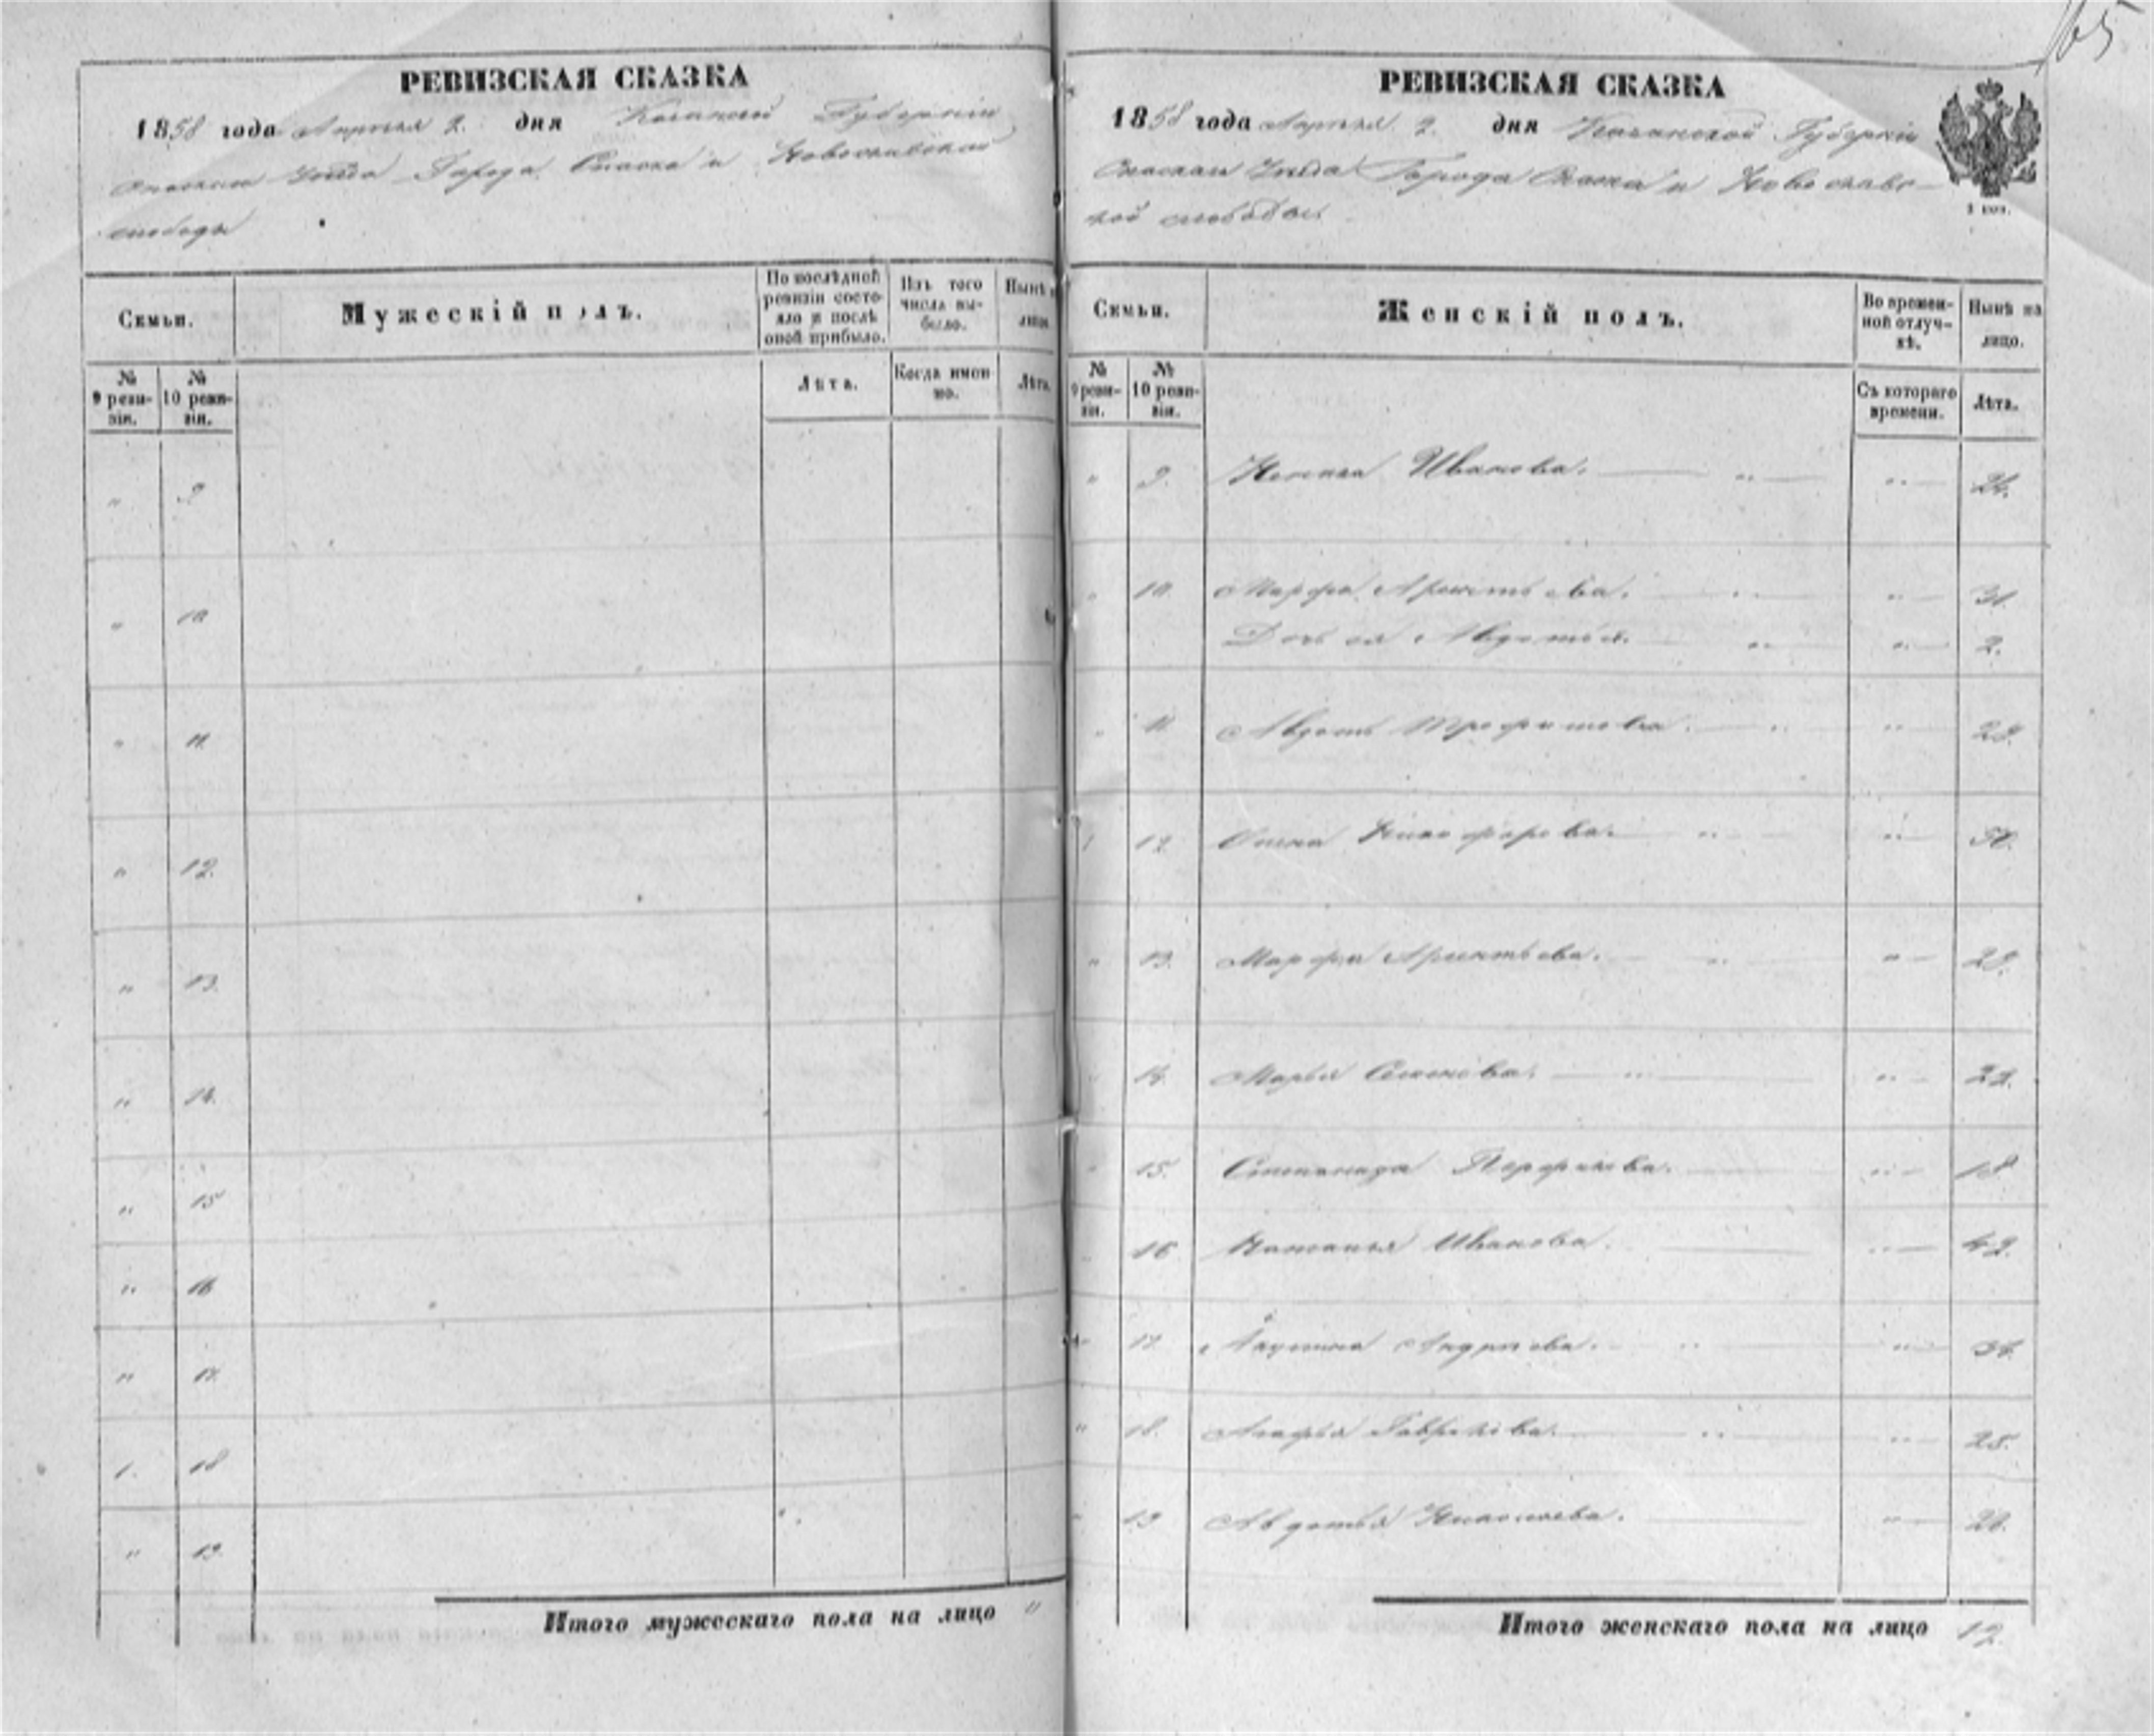 65
РЕВИЗСКАЯ СКАЗКА
1858 года Апреля 2. дня Казанской Губерніи
Спаскаго Уезда Города Спаска и Новоспавской
слободы
Семьи.
Мужескій полъ.
По послѣдней ревизіи состояло и послѣ оной прибыло.
Изъ того числа выбыло.
Нынѣ на лицо.
№ 9 ревизіи.
№ 10 ревизіи.
Лѣта.
Когда именно.
Лѣта.
" 9
" 10
" 11.
" 12.
" 13.
" 14.
" 15
" 16
" 17.
1. 18
" 19.
Итого мужескаго пола на лицо "
РЕВИЗСКАЯ СКАЗКА
1858 года Апреля 2. дня Казанской Губерніи
Спаскаго Уезда Города Спаска и
кой слободы
Семьи.
Женскій полъ.
Во временной отлучкѣ.
Нынѣ на лицо.
№ 9 ревизіи.
№ 10 ревизіи.
Съ котораго времени.
Лѣта.
" 9. Иванова. " " 24.
" 10 Марфа " " 31.
Дочь ея Авдотья. " " 2.
" 11 Авдотья Трофимова. " " 29.
12 Никифорова. " " 50.
" 13. Марфа " " 29.
14. Марья Семенова. " " 22.
" 15. Степанида Перфилова. " 18
16 Наталья Иванова. " 42.
17. Акулина Андреева. " " 34.
" 18. Агафья Гаврилова. " " 25.
" 19 Авдотья Николаева. " 20.
Итого женскаго пола на лицо 12.